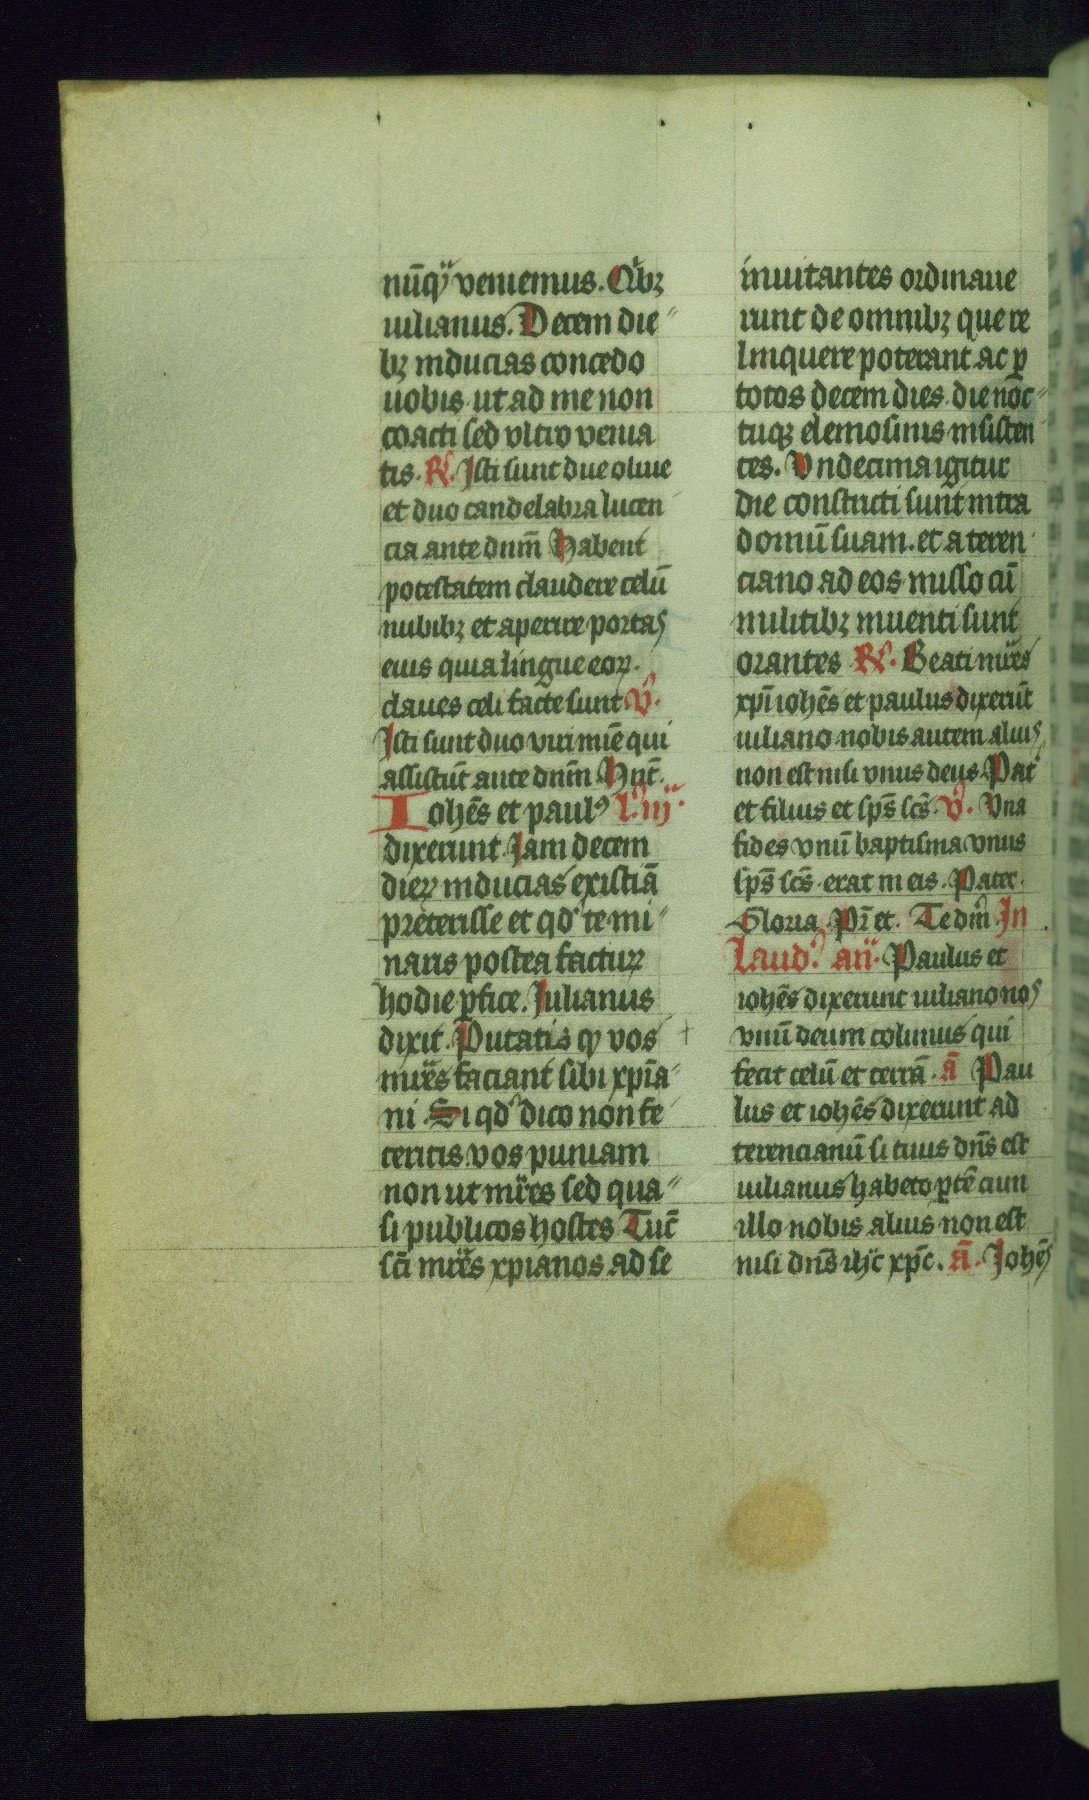 nūqͣ veniemus. Qͥbꝫ
iulianus. Decem die
bꝫ inducias concedo
uobis ut ad me non
coacti sed vltro venia
tis. R̸. Isti sunt due oliue
et duo candelabra lucen
cia ante dnm̄ Habent
potestatem claudere celū
nubibꝫ et aperire portas
eius quia lingue eoꝝ.
claues celi facte sunt V̊.
Isti sunt duo viri mīe qui
assistūt ante dnm̄ Hn̄t.
Iohēs et paulꝰ l̊. iij.
dixerunt. Iam decem
dieꝝ inducias existiā
preterisse et qd̓ te mi
naris postea factuꝝ
hodie ꝑfice. Iulianus
dixit. Putatis qꝫ vos
mr̄es faciant sibi xp̄ia
ni. Si qd̓ dico non fe
ceritis. vos puniam
non ut mr̄es sed qua
si publicos hostes Tūc
sc̄i mr̄es xp̄ianos ad se
inuitantes ordinaue
runt de omnibꝫ que re
linquere poterant ac ꝑ
totos decem dies. die noc
tuqꝫ elemosinis insisten
tes. Vndecima igitur
die constricti sunt intra
domū suam. et a teren
ciano ad eos misso cū
militibꝫ inuenti sunt
orantes R̸. Beati mr̄es
xp̄i iohēs et paulus dixerūt
iuliano nobis autem alius
non est nisi vnus deus. Pat̓
et filius et sp̄s sc̄s. V̊. Vna
fides vnū baptisma vnus
sp̄s sc̄s erat in eis. Pater.
Gloria. Pr̄ et. Te dm̄. In
Laud̓. an̄. Paulus et
iohēs dixerunt iuliano nos
vnū deum colimus qui
fecit celū et terrā. ā Pau
lus et iohēs dixerunt ad
terencianū si tuus dn̄s est
iulianus habeto ꝑtē cum
illo nobis alius non est
nisi dn̄s ih̄c xp̄c. ā. Iohēs